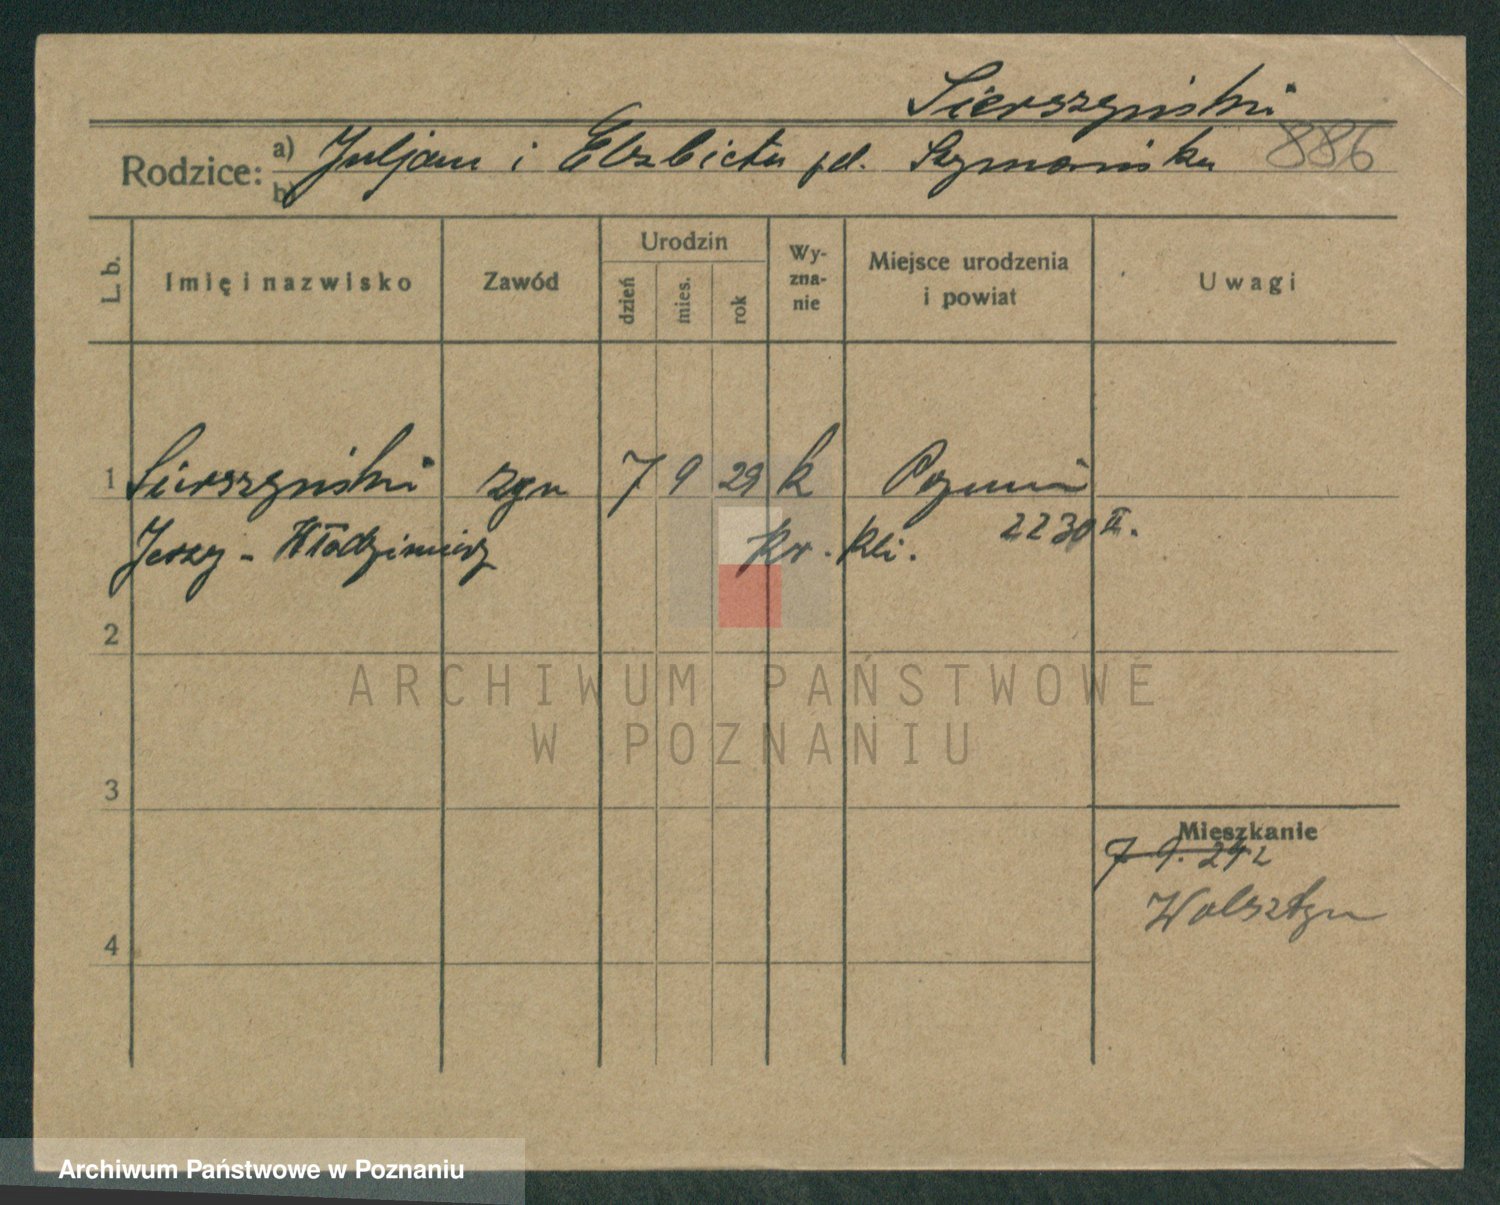 Sierszyński
Rodzice: a) Juljan i Elżbieta zd. Szymańska 886
b)
L. b. Imię i nazwisko Zawód Urodzin dzień mies. rok Wy-zna-nie Miejsce urodzenia i powiat Uwagi
1 Sierszyński 7 9 29 k Poznań
Jerzy - Włodzimierz Kr. Kli. 2230 II.
2
ARCHIWUM PAŃSTWOWE
W POZNANIU
3
Mieszkanie
7 9. 29
Wolsztyn
4
Archiwum Państwowe w Poznaniu